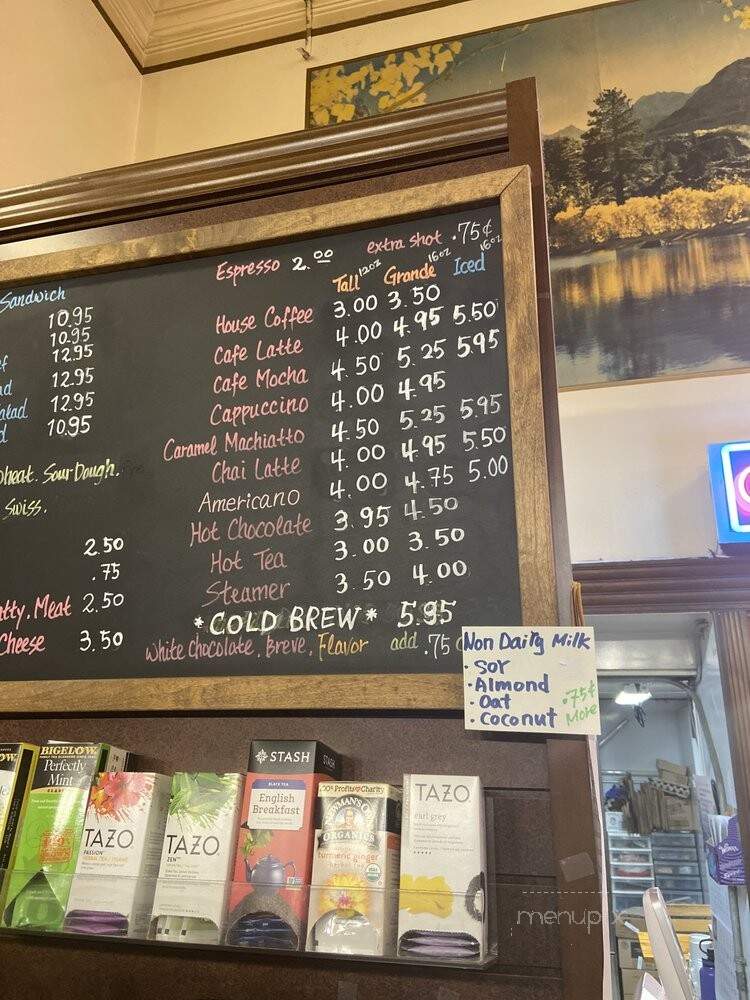 Espresso 2.00 extra shot .75¢
Tall 12oz Grande 16oz Iced 16oz
House Coffee 3.00 3.50
Cafe Latte 4.00 4.95 5.50
Cafe Mocha 4.50 5.25 5.95
Cappuccino 4.00 4.95
Caramel Machiatto 4.50 5.25 5.95
Chai Latte 4.00 4.95 5.50
Americano 4.00 4.75 5.00
Hot Chocolate 3.95 4.50
Hot Tea 3.00 3.50
Steamer 3.50 4.00
*COLD BREW* 5.95
White chocolate. Breve. Flavor add .75
Sandwich
10.95
10.95
12.95
12.95
12.95
10.95
Sour Dough.
Swiss.
2.50
.75
Meat 2.50
Cheese 3.50
Non Dairy Milk
• Soy
• Almond
• Oat
• Coconut
.75¢
More
BIGELOW
Perfectly
Mint
TAZO
PASSION
TAZO
ZEN
STASH
BLACK TEA
English
Breakfast
100% Profits to Charity
NEWMAN'S OWN
ORGANICS
turmeric ginger
TAZO
earl grey
menupix